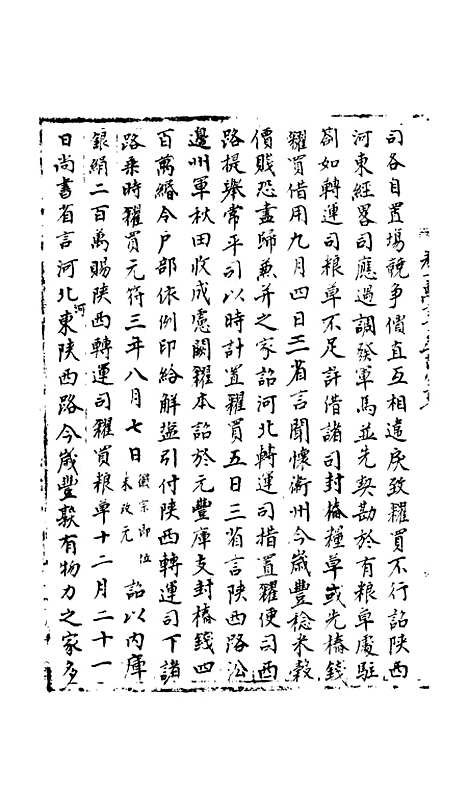 司各自置場競争價直互相違戾致糴買不行詔陝西
河東經畧司應過調發軍馬並先契勘於有粮草處駐
劄如轉運司粮草不足許借諸司封樁糧草或先樁錢
糴買借用九月四日三省言聞懷衛州今歲豐稔米穀
價賤恐盡歸兼并之家詔河北轉運司措置糴便司西
路提舉常平司以時計置糴買五日三省言陝西路㳂
邊州軍秋田收成慮闕糴本詔於元豐庫支封樁錢四
百萬緡令戶部依例印給解塩引付陝西轉運司下諸
路乗時糴買元符三年八月七日徽宗即位未改元詔以内庫
銀絹二百萬賜陝西轉運司糴買粮草十二月二十一
日尚書省言河北河東陝西路今歲豐熟有物力之家多